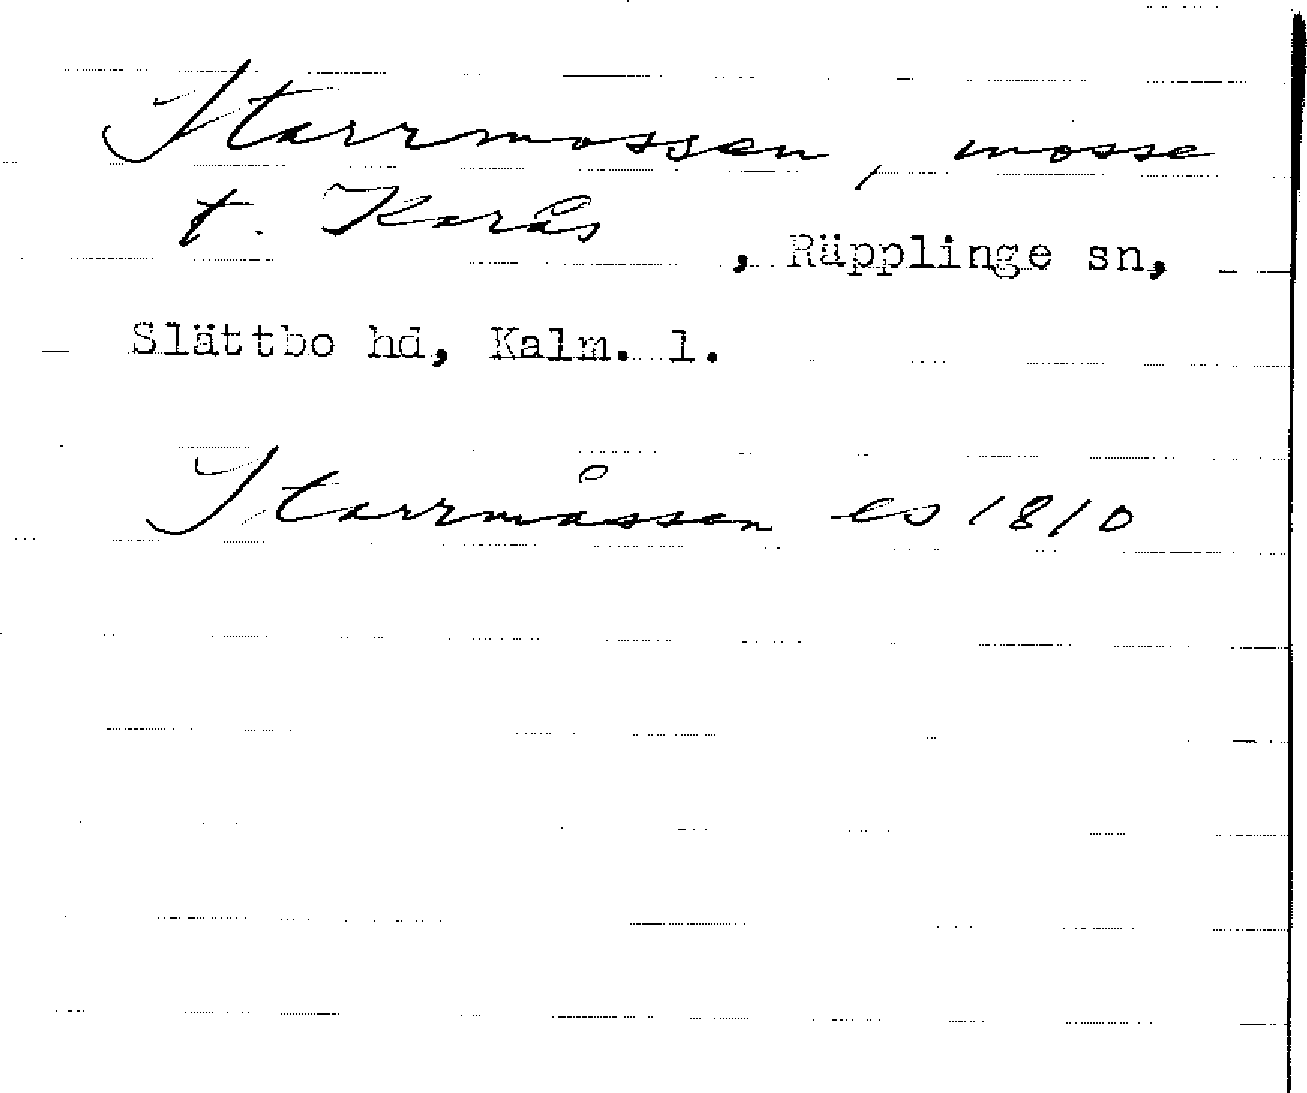 Starrmossen, mosse
t. Karås, Räpplinge sn,
Slättbo hd, Kalm. l.
Starrmåssen es 1810